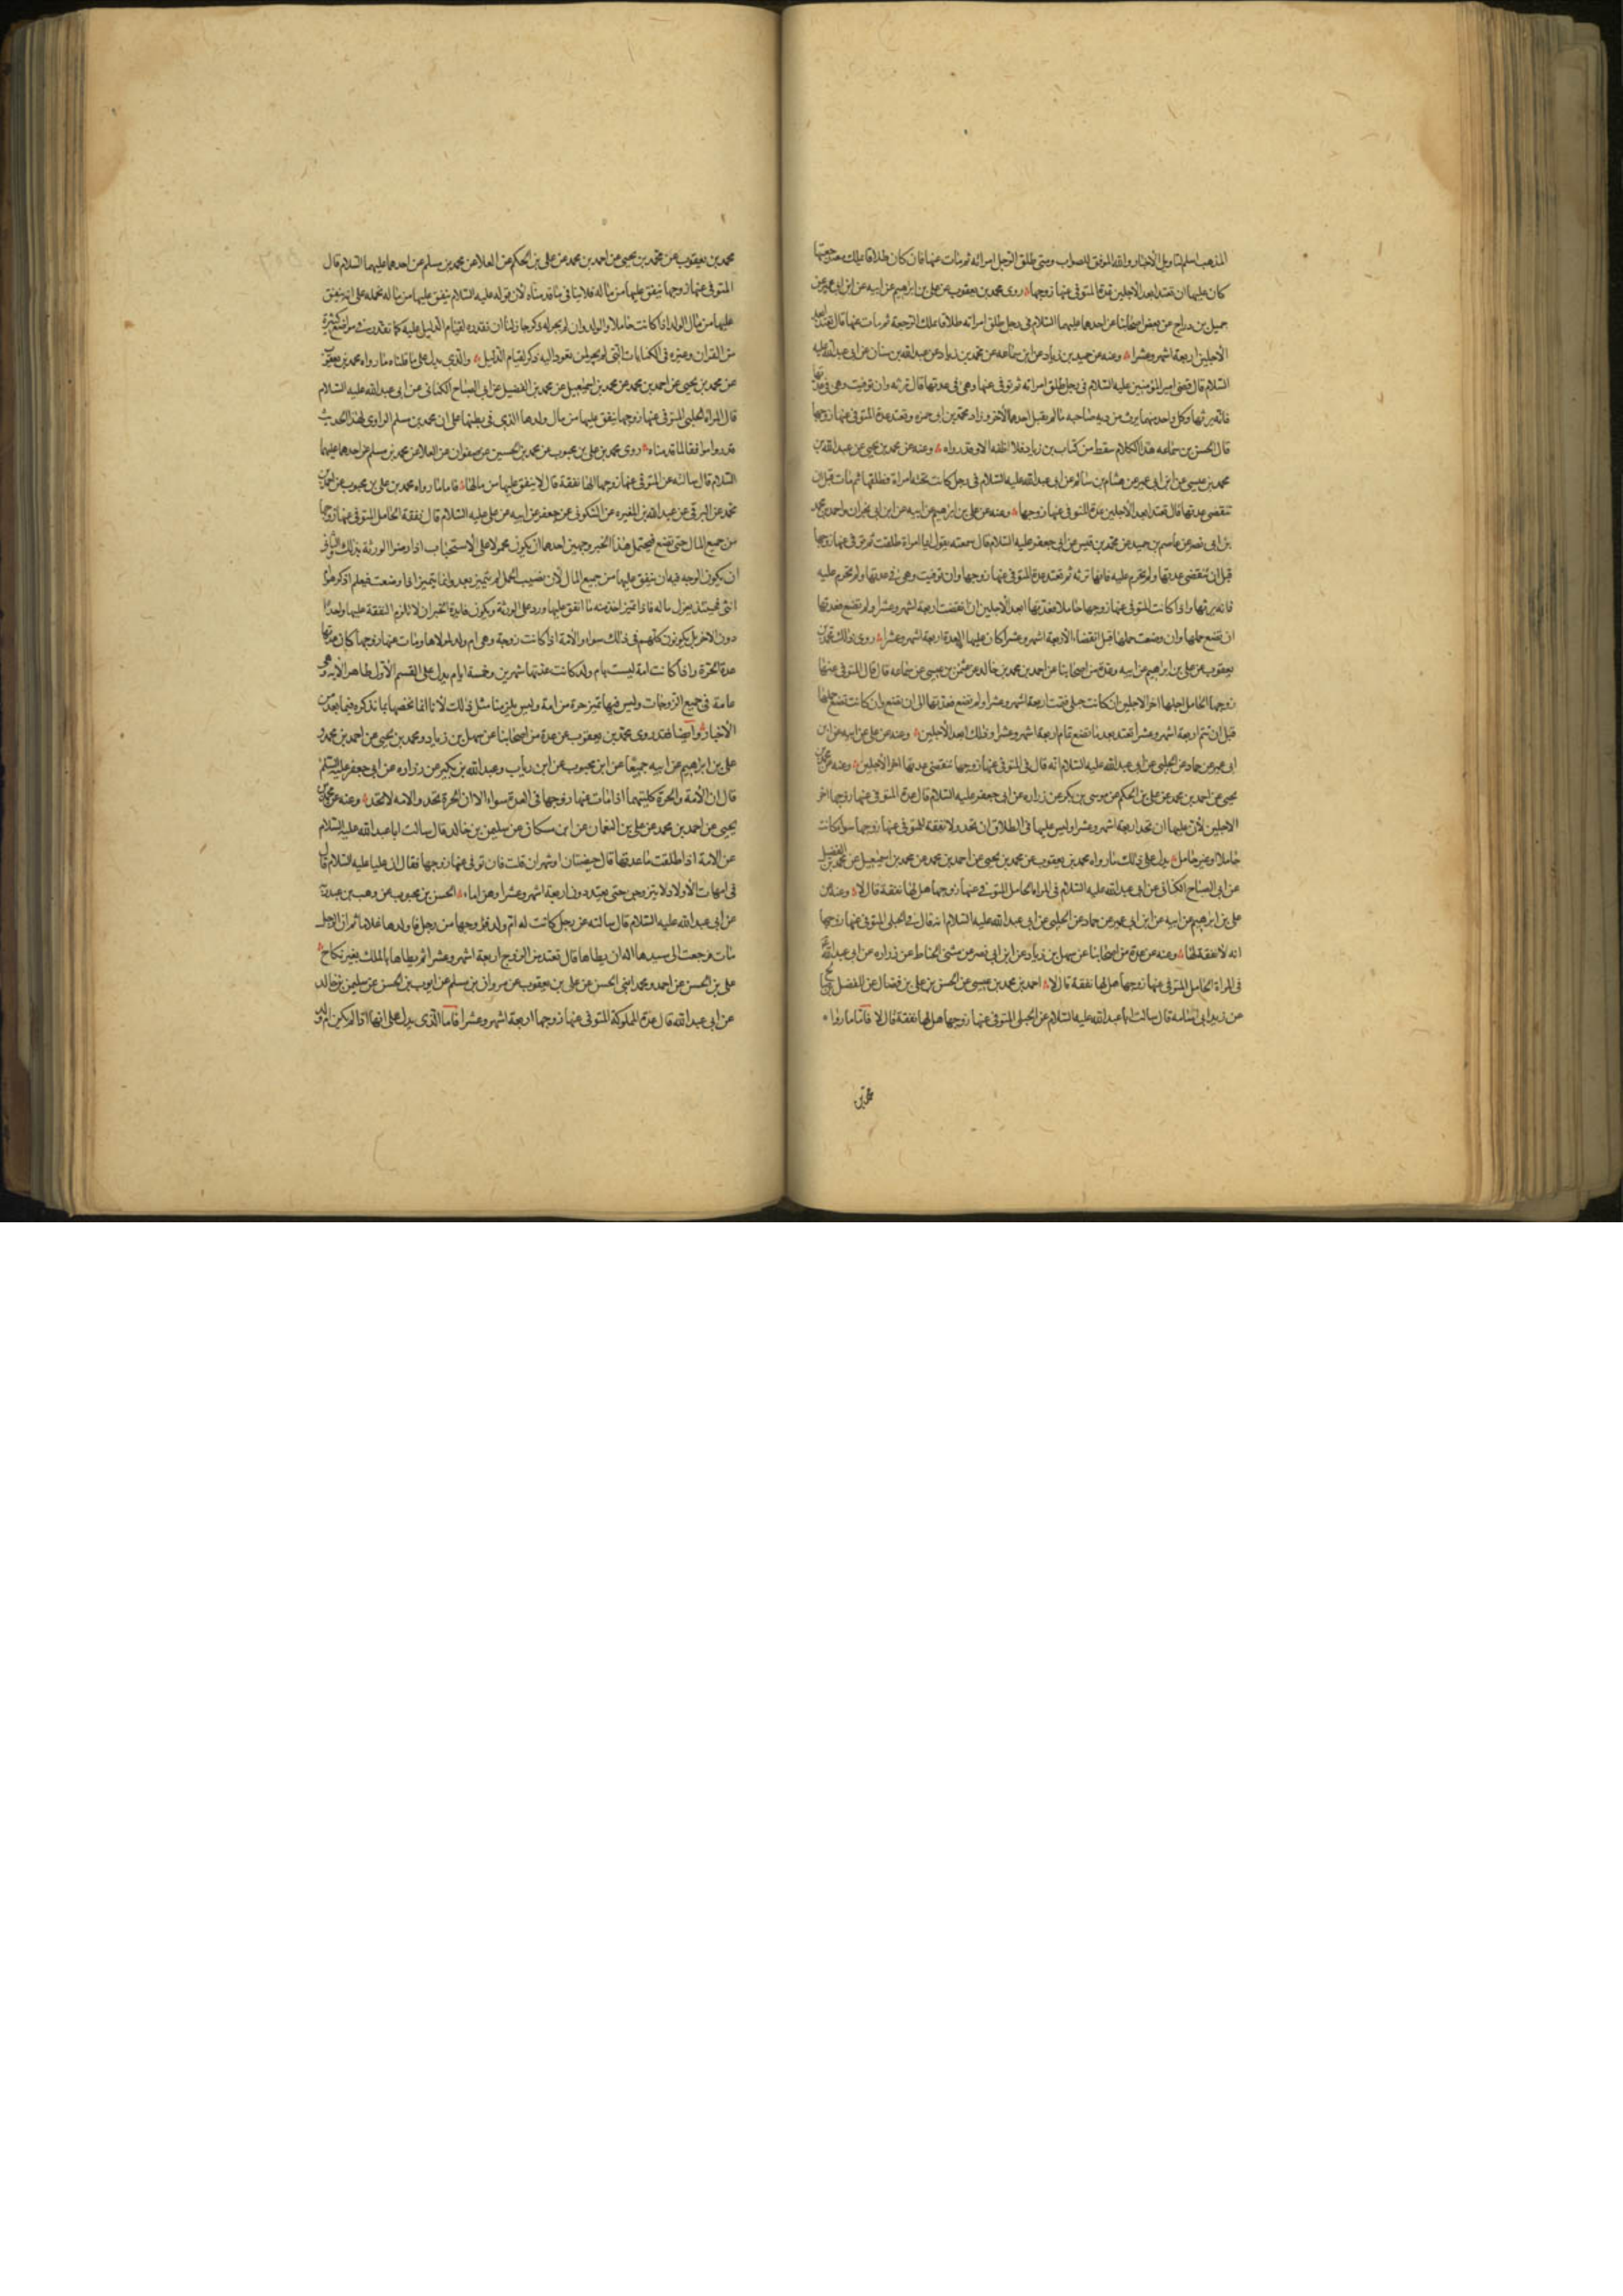 المذهب اسلم لتاويل الأخبار والله الموفق للصواب ومتى طلق الرجل امراته ثم مات عنها فان كان طلاقا يملك معه رجعتها
كان عليها ان تعتد ابعد الأجلين عدة المتوفى عنها زوجها روى محمد بن يعقوب عن على بن ابراهيم عن ابيه عن ابن ابى عمير عن
جميل بن دراج عن بعض اصحابنا عن احدهما عليهما السلام فى رجل طلق امراته طلاقا يملك الرجعة ثم مات عنها قال تعتد ابعد
الأجلين اربعة اشهر وعشرا وعنه عن حميد بن زياد عن ابن سماعه عن محمد بن زياد عن عبدالله بن سنان عن ابى عبدالله عليه
السلام قال قضى امير المؤمنين عليه السلام فى رجل طلق امراته ثم توفى عنها وهى فى عدتها قال ترثه وان توفيت وهى فى عدتها
فانه يرثها وكل واحد منهما يرث من دية صاحبه مالم يقتل احدهما الآخر وزاد محمد بن ابى حمزه وتعتد عدة المتوفى عنها زوجها
قال الحسن بن سماعه هذا الكلام سقط من كتاب بن زياد فلا اظنه الا وقد رواه وعنه عن محمد بن يحيى عن عبدالله بن
محمد بن عيسى عن ابن ابى عمير عن هشام بن سالم عن ابى عبدالله عليه السلام فى رجل كانت تحته امراة فطلقها ثم مات قبل ان
تنقضى عدتها قال تعتد ابعد الأجلين عدة المتوفى عنها زوجها وعنه عن على بن ابرهيم عن ابيه عن ابن ابى نجران واحمد بن محمد
بن ابى نصر عن عاصم بن حميد عن محمد بن قيس عن ابى جعفر عليه السلام قال سمعته يقول ايما امراة طلقت ثم توفى عنها زوجها
قبل ان تنقضى عدتها ولم تحرم عليه فانها ترثه ثم تعتد عدة المتوفى عنها زوجها وان توفيت وهى فى عدتها ولم تحرم عليه
فانه يرثها واذا كانت المتوفى عنها زوجها حاملا فعدتها ابعد الاجلين ان انقضت اربعة اشهر وعشرا ولم تضع فعدتها
ان تضع حملها وان وضعت حملها قبل انقضاء الأربعة اشهر وعشر كان عليها العدة اربعة اشهر وعشرا روى ذلك محمد بن
يعقوب عن على بن ابراهيم عن ابيه وعدة من اصحابنا عن احمد بن محمد بن خالد عن عثمن بن عيسى عن سماعه قال قال المتوفى عنها
زوجها الحامل اجلها اخر الاجلين ان كانت حبلى فتمت اربعة اشهر وعشرا ولم تضع فعدتها الى ان تضع وان كانت تضع حملها
قبل ان تتم اربعة اشهر وعشرا تعتد بعد ما تضع تمام اربعة اشهر وعشرا وذلك ابعد الأجلين وعنه عن على عن ابيه عن ابن
ابى عمير عن حماد عن الحلبى عن ابى عبدالله عليه السلام انه قال فى المتوفى عنها زوجها تنقضى عدتها اخر الأجلين وعنه عن محمد بن
يحيى عن احمد بن محمد عن على بن الحكم عن موسى بن بكر عن زراره عن ابى جعفر عليه السلام قال عدة المتوفى عنها زوجها اخر
الاجلين لأن عليها ان تحد اربعة اشهر وعشرا وليس عليها فى الطلاق ان تحد ولا نفقة للمتوفى عنها زوجها سواء كانت
حاملا او غير حامل يدل على ذلك ما رواه محمد بن يعقوب عن محمد بن يحيى عن احمد بن محمد عن محمد بن اسمعيل عن محمد بن الفضيل
عن ابى الصباح الكنانى عن ابى عبدالله عليه السلام فى المراة الحامل المتوفى عنها زوجها هل لها نفقة قال لا وعنه عن
على بن ابرهيم عن ابيه عن ابن ابى عمير عن حماد عن الحلبى عن ابى عبدالله عليه السلام انه قال فى الحبلى المتوفى عنها زوجها
انه لا نفقة لها وعنه عن عدة من اصحابنا عن سهل بن زياد عن ابن ابى نصر عن مثنى الحناط عن زراره عن ابى عبدالله
فى المراة الحامل المتوفى عنها زوجها هل لها نفقة قال لا احمد بن محمد بن عيسى عن الحسن بن على بن فضال عن المفضل بن صالح
عن زيد ابى اسامه قال سالت ابا عبدالله عليه السلام عن الحبلى المتوفى عنها زوجها هل لها نفقة قال لا فاما ما رواه
محمد بن
محمد بن يعقوب عن محمد بن يحيى عن احمد بن محمد عن على بن الحكم عن العلا عن محمد بن مسلم عن احدهما عليهما السلام قال
المتوفى عنها زوجها ينفق عليها من ماله فلا ينافى ما قدمناه لأن قوله عليه السلام ينفق عليها من ماله نحمله على انه ينفق
عليها من مال الولد اذا كانت حاملا والولد وان لم يجر له ذكر جاز لنا ان نقدره لقيام الدليل عليه كما نقدر فى مواضع كثيرة
من القران وغيره فى الكنايات التى لم يجر لمن تعود اليه ذكر لقيام الدليل والذى يدل على ما قلناه ما رواه محمد بن يعقوب
عن محمد بن يحيى عن احمد بن محمد عن محمد بن اسمعيل عن محمد بن الفضيل عن ابى الصباح الكنانى عن ابى عبدالله عليه السلام
قال المراة الحبلى المتوفى عنها زوجها ينفق عليها من مال ولدها الذى فى بطنها على ان محمد بن مسلم الراوى لهذا الحديث
قد روا موافقا لما قدمناه روى محمد بن على بن محبوب عن محمد بن الحسين عن صفوان عن العلا عن محمد بن مسلم عن احدهما عليهما
السلام قال سالته عن المتوفى عنها زوجها الها نفقة قال لا ينفق عليها من مالها فاما ما رواه محمد بن على بن محبوب عن احمد بن
محمد عن البرقى عن عبدالله بن المغيره عن السكونى عن جعفر عن ابيه عن على عليه السلام قال نفقة الحامل المتوفى عنها زوجها
من جميع المال حتى تضع فيحتمل هذا الخبر وجهين احدهما ان يكون محمولا على الاستحباب اذا رضوا الورثة بذلك والثانى
ان يكون الوجه فيه ان ينفق عليها من جميع المال لأن نصيب الحمل لم يتميز بعد وانما يتميز اذا وضعت فيعلم اذكر هو ام
انثى فحينئذ يعزل ماله فاذا تميز اخذ منه ما انفق عليها ورد على الورثة ويكون فايدة الخبر ان لا تلزم النفقة عليها واحدا
دون الاخر بل يكونون كلهم فى ذلك سواء والأمة اذا كانت زوجة وهى ام ولد لمولاها ومات عنها زوجها كان عدتها
عدة الحرة واذا كانت امة ليست بام ولد كانت عدتها شهرين وخمسة ايام يدل على القسم الأول ظاهر الآية وهى
عامة فى جميع الزوجات وليس فيها تميز حرة من امة وليس يلزمنا مثل ذلك لأنا انما نخصها بما نذكره فيما بعد من
الأخبار وايضا فقد روى محمد بن يعقوب عن عدة من اصحابنا عن سهل بن زياد ومحمد بن يحيى عن احمد بن محمد و
على بن ابراهيم عن ابيه جميعا عن ابن محبوب عن ابن رياب وعبدالله بن بكير عن زراره عن ابى جعفر عليه السلم
قال ان الأمة والحرة كليتهما اذا مات عنها زوجها فى العدة سواء الا ان الحرة تحد والامه لا تحد وعنه عن محمد بن
يحيى عن احمد بن محمد عن على بن النعمان عن ابن مسكان عن سليمن بن خالد قال سالت ابا عبدالله عليه السلام
عن الامة اذا طلقت ما عدتها قال حيضتان او شهران قلت فان توفى عنها زوجها فقال ان عليا عليه السلام قال
فى امهات الأولاد لا يتزوجن حتى يعتددن اربعة اشهر وعشرا وهن اماء الحسن بن محبوب عن وهب بن عبدربه
عن ابى عبدالله عليه السلام قال سالته عن رجل كانت له ام ولد فزوجها من رجل فاولدها غلاما ثم ان الرجل
مات فرجعت الى سيدها اله ان يطاها قال تعتد من الزوج اربعة اشهر وعشرا ثم يطاها بالملك بغير نكاح
على بن الحسن عن احمد ومحمد ابنى الحسن عن على بن يعقوب عن مروان بن مسلم عن ايوب بن الحسن عن سليمن بن خالد
عن ابى عبدالله قال عدة المملوكة المتوفى عنها زوجها اربعة اشهر وعشرا فاما الذى يدل على انها اذا لم تكن ام ولد